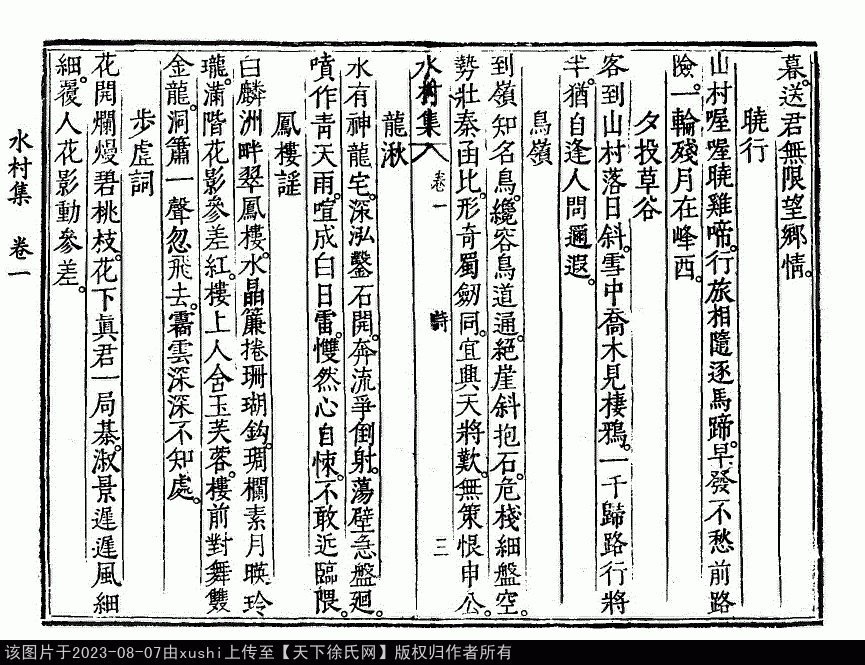 暮。送君無限望鄉情。
曉行
山村喔喔曉雞啼。行旅相隨逐馬蹄。早發不愁前路
險。一輪殘月在峰西。
夕投草谷
客到山村落日斜。雪中喬木見棲鴉。一千歸路行將
半。猶自逢人問邇遐。
鳥嶺
到嶺知名鳥。纔容鳥道通。絕崖斜抱石。危棧細盤空。
勢壯秦函比。形奇蜀劒同。宜興天將歎。無策恨申公。
水村集 卷一 詩 三
龍湫
水有神龍宅。深泓鑿石開。奔流爭倒射。蕩壁急盤廻。
噴作靑天雨。喧成白日雷。戄然心自悚。不敢近臨隈。
鳳樓謡
白麟洲畔翠鳳樓。水晶簾捲珊瑚鈎。琱欄素月暎玲
瓏。滿階花影參差紅。樓上人含玉芙蓉。樓前對舞雙
金龍。洞簫一聲忽飛去。靄雲深深不知處。
步虛詞
花開爛熳碧桃枝。花下眞君一局棊。淑景遲遲風細
細。覆人花影動參差。
水村集 卷一
该图片于2023-08-07由xushi上传至【天下徐氏网】版权归作者所有